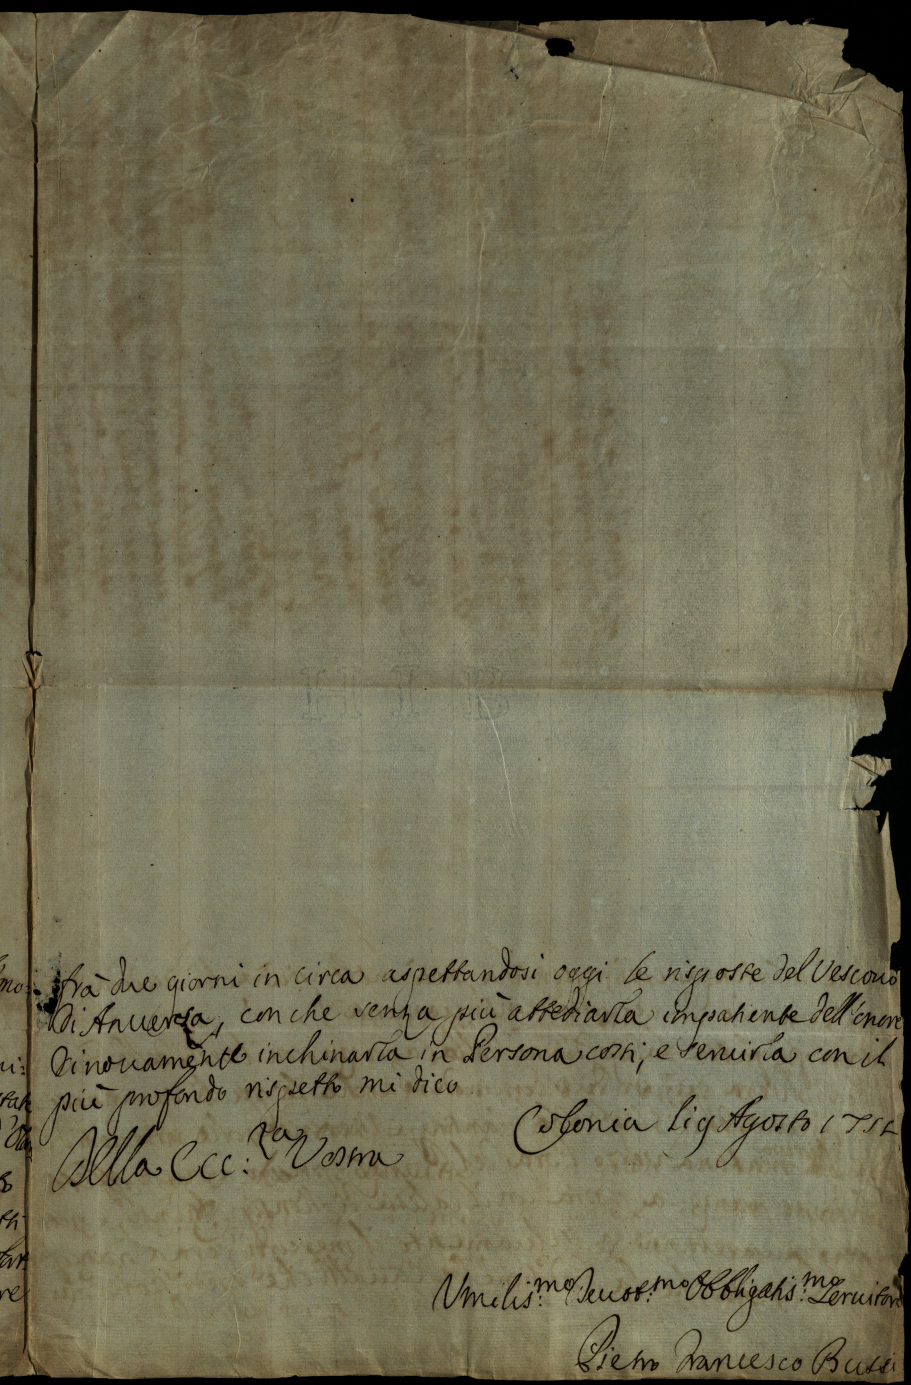 frà due giorni in circa aspettandosi oggi le risposte del Vescovo
di Anuersa, con che senza più attediarla impatiente dell'onore
di nouamente inchinarla in Persona costi, e seruirla con il
più profondo rispetto mi dico
Colonia li 9 Agosto 171
Della Ecc:za Vostra
Umilis:mo Deuot:mo Obbligatis:mo Seruitore
Pietro Francesco Bussi